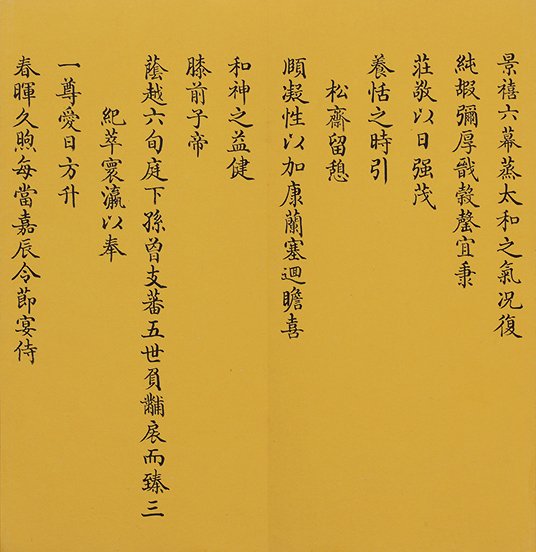 景禧六幕蒸太和之氣况復
純嘏彌厚戩穀罄宜秉
莊敬以日强茂
養恬之時引
松齋留憩
頤凝性以加康蘭塞迴瞻喜
和神之益健
膝前子帝
蔭越六旬庭下孫曾支蕃五世負黼扆而臻三
紀萃寰瀛以奉
一尊愛日方升
春暉久煦每當嘉辰令節宴侍